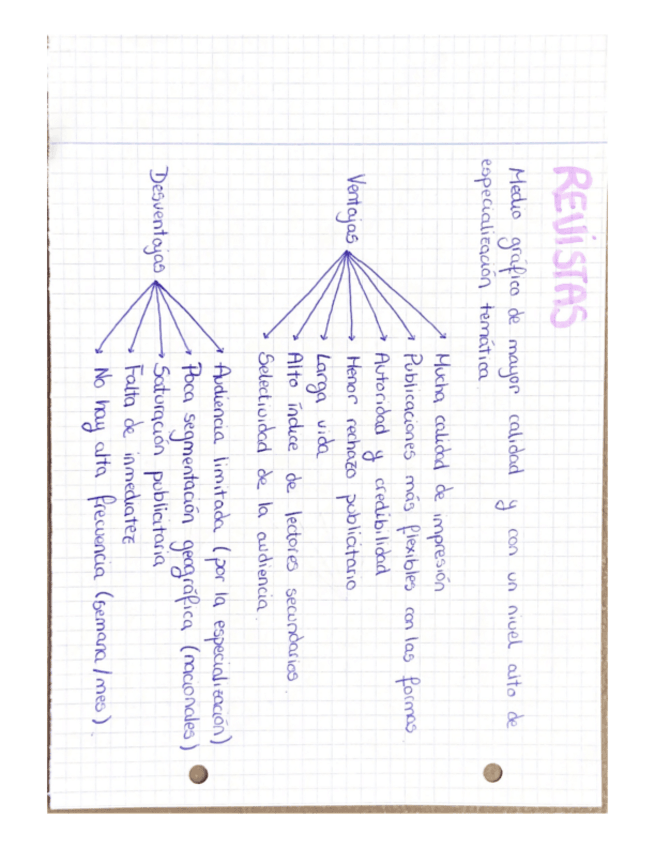 REVISTAS
Medio gráfico de mayor calidad y con un nivel alto de
especialización temática.
Ventajas
Mucha calidad de impresión
Publicaciones más flexibles con las formas.
Autoridad y credibilidad
Menor rechazo publicitario
Larga vida
Alto índice de lectores secundarios.
Selectividad de la audiencia.
Desventajas
Audiencia limitada (por la especialización)
Poca segmentación geográfica (nacionales)
Saturación publicitaria
Falta de inmediatez
No hay alta frecuencia (semana/mes).